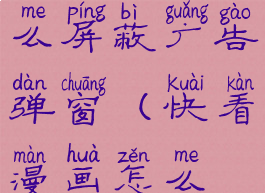 me píng bì guǎng gào
么屏蔽广告
dàn chuāng kuài kàn
弹窗（快看
màn huà zěn me
漫画怎么